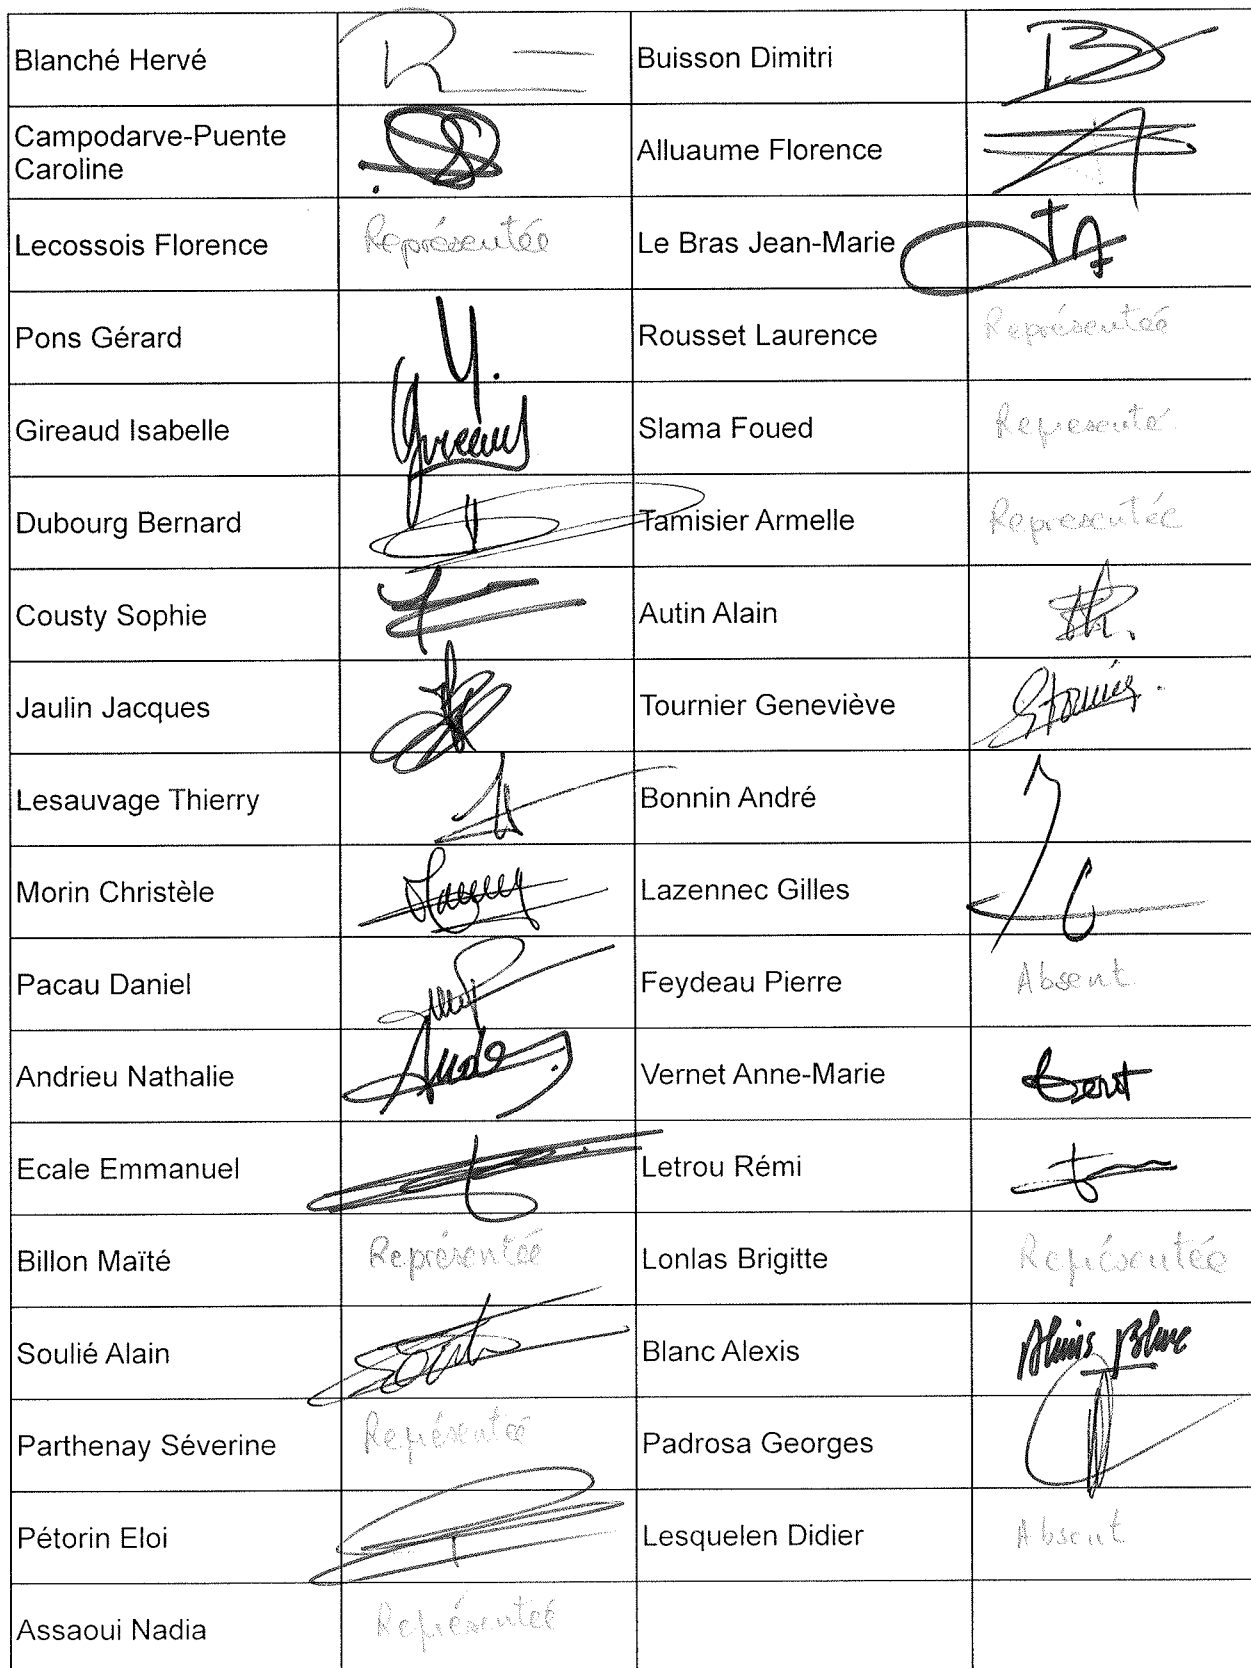 Blanché Hervé
Buisson Dimitri
Campodarve-Puente
Caroline
Alluaume Florence
Lecossois Florence
Représentée
Le Bras Jean-Marie
Pons Gérard
Rousset Laurence
Représentée
Gireaud Isabelle
Slama Foued
Représenté
Dubourg Bernard
Tamisier Armelle
Représentée
Cousty Sophie
Autin Alain
Jaulin Jacques
Tournier Geneviève
Lesauvage Thierry
Bonnin André
Morin Christèle
Lazennec Gilles
Pacau Daniel
Feydeau Pierre
Absent
Andrieu Nathalie
Vernet Anne-Marie
Ecale Emmanuel
Letrou Rémi
Billon Maïté
Représentée
Lonlas Brigitte
Représentée
Soulié Alain
Blanc Alexis
Alexis Blanc
Parthenay Séverine
Représentée
Padrosa Georges
Pétorin Eloi
Lesquelen Didier
Absent
Assaoui Nadia
Représentée